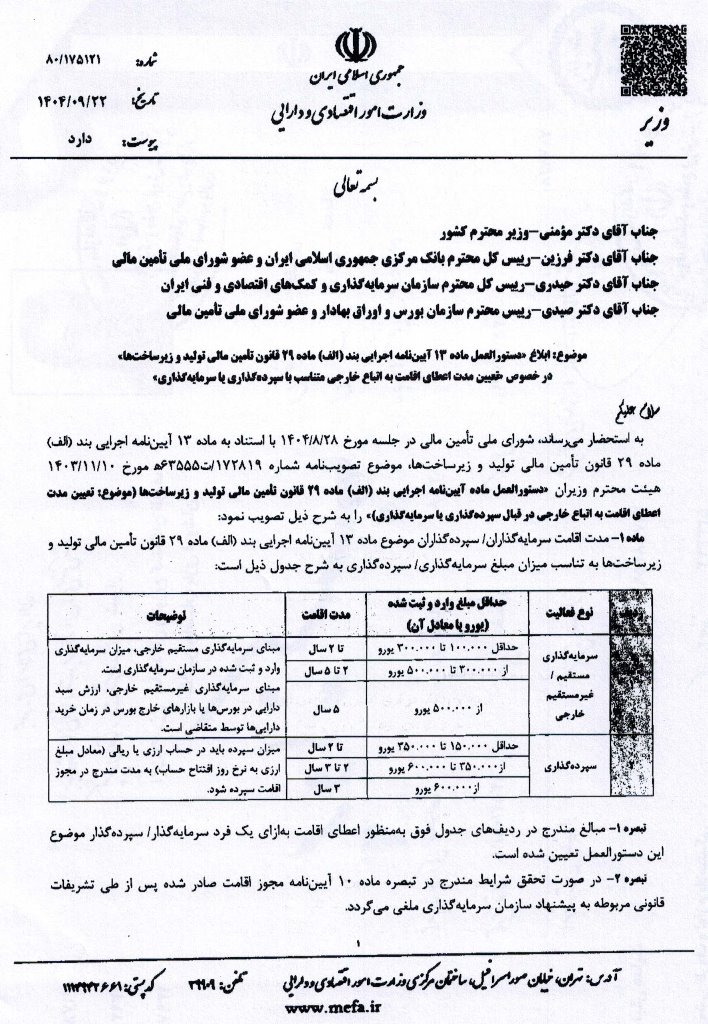 جمهوری اسلامی ایران
وزارت امور اقتصادی و دارایی
وزیر
شماره: ۸۰/۱۷۵۱۲۱
تاریخ: ۱۴۰۴/۰۹/۲۲
پیوست: دارد
بسمه تعالی
جناب آقای دکتر مؤمنی–وزیر محترم کشور
جناب آقای دکتر فرزین–رییس کل محترم بانک مرکزی جمهوری اسلامی ایران و عضو شورای ملی تأمین مالی
جناب آقای دکتر حیدری–رییس کل محترم سازمان سرمایه‌گذاری و کمک‌های اقتصادی و فنی ایران
جناب آقای دکتر صیدی–رییس محترم سازمان بورس و اوراق بهادار و عضو شورای ملی تأمین مالی
موضوع: ابلاغ «دستورالعمل ماده ۱۳ آیین‌نامه اجرایی بند (الف) ماده ۲۹ قانون تأمین مالی تولید و زیرساخت‌ها»
در خصوص «تعیین مدت اعطای اقامت به اتباع خارجی متناسب با سپرده‌گذاری یا سرمایه‌گذاری»
سلام علیکم
به استحضار می‌رساند، شورای ملی تأمین مالی در جلسه مورخ ۱۴۰۴/۸/۲۸ با استناد به ماده ۱۳ آیین‌نامه اجرایی بند (الف)
ماده ۲۹ قانون تأمین مالی تولید و زیرساخت‌ها، موضوع تصویب‌نامه شماره ۱۷۲۸۱۹/ت۶۳۵۵۵ه‍ مورخ ۱۴۰۳/۱۱/۱۰
هیئت محترم وزیران «دستورالعمل ماده آیین‌نامه اجرایی بند (الف) ماده ۲۹ قانون تأمین مالی تولید و زیرساخت‌ها (موضوع: تعیین مدت
اعطای اقامت به اتباع خارجی در قبال سپرده‌گذاری یا سرمایه‌گذاری)» را به شرح ذیل تصویب نمود:
ماده۱– مدت اقامت سرمایه‌گذاران/ سپرده‌گذاران موضوع ماده ۱۳ آیین‌نامه اجرایی بند (الف) ماده ۲۹ قانون تأمین مالی تولید و
زیرساخت‌ها به تناسب میزان مبلغ سرمایه‌گذاری/ سپرده‌گذاری به شرح جدول ذیل است:
ردیف نوع فعالیت حداقل مبلغ وارد و ثبت شده (یورو یا معادل آن) مدت اقامت توضیحات
سرمایه‌گذاری
مستقیم /
غیرمستقیم
خارجی
حداقل ۱۰۰.۰۰۰ تا ۳۰۰.۰۰۰ یورو تا ۲ سال
از ۳۰۰.۰۰۰ تا ۵۰۰.۰۰۰ یورو ۲ تا ۵ سال
از ۵۰۰.۰۰۰ یورو ۵ سال
مبنای سرمایه‌گذاری مستقیم خارجی، میزان سرمایه‌گذاری
وارد و ثبت شده در سازمان سرمایه‌گذاری است.
مبنای سرمایه‌گذاری غیرمستقیم خارجی، ارزش سبد
دارایی در بورس‌ها یا بازارهای خارج بورس در زمان خرید
دارایی‌ها توسط متقاضی است.
۲ سپرده‌گذاری
حداقل ۱۵۰.۰۰۰ تا ۳۵۰.۰۰۰ یورو تا ۲ سال
از ۳۵۰.۰۰۰ تا ۶۰۰.۰۰۰ یورو ۲ تا ۳ سال
از ۶۰۰.۰۰۰ یورو ۳ سال
میزان سپرده باید در حساب ارزی یا ریالی (معادل مبلغ
ارزی به نرخ روز افتتاح حساب) به مدت مندرج در مجوز
اقامت سپرده شود.
تبصره ۱– مبالغ مندرج در ردیف‌های جدول فوق به‌منظور اعطای اقامت به‌ازای یک فرد سرمایه‌گذار/ سپرده‌گذار موضوع
این دستورالعمل تعیین شده است.
تبصره ۲– در صورت تحقق شرایط مندرج در تبصره ماده ۱۰ آیین‌نامه مجوز اقامت صادر شده پس از طی تشریفات
قانونی مربوطه به پیشنهاد سازمان سرمایه‌گذاری ملغی می‌گردد.
۱
آدرس: تهران، خیابان صوراسرافیل، ساختمان مرکزی وزارت امور اقتصادی و دارایی تلفن: ۳۹۹۰۹ کدپستی: ۱۱۱۴۹۴۳۶۶۱
www.mefa.ir